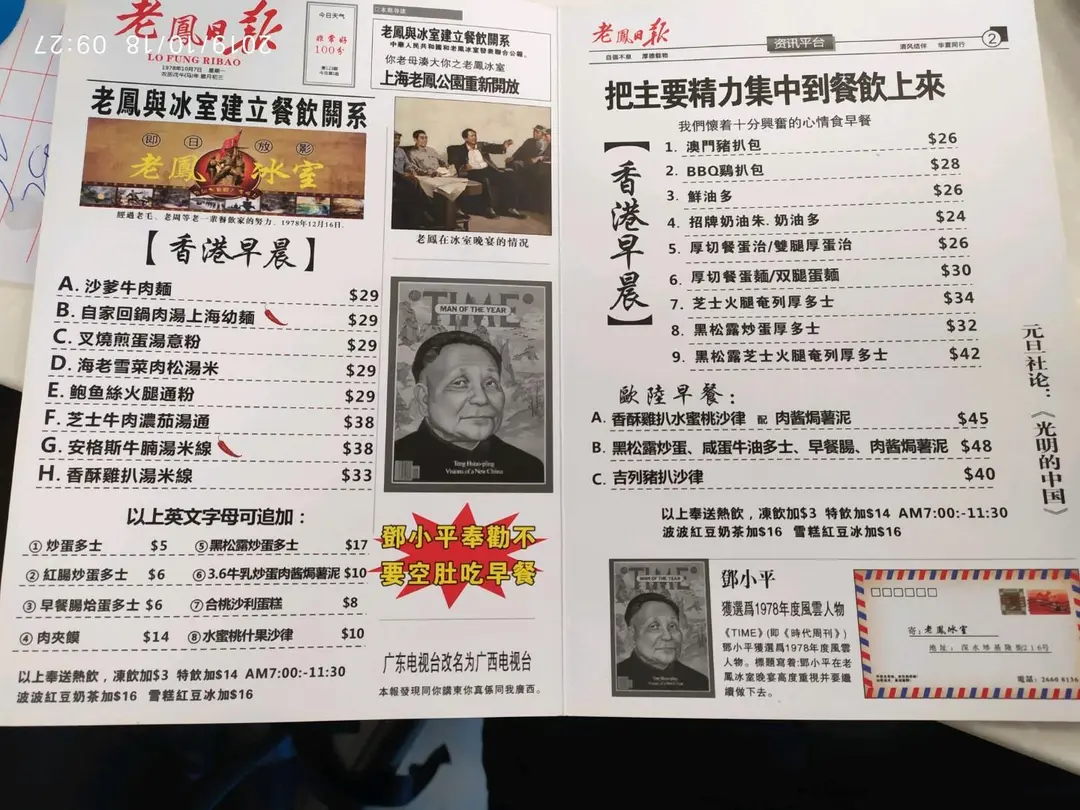 2019/10/18 09:27
老鳳日报
LO FUNG RIBAO
1978年10月7日 星期一
今日天气
非常好
100分
老鳳與冰室建立餐飲關系
即日放影
老鳳冰室
經過老毛、老周等老一輩餐飲家的努力，1978年12月16日.
【香港早晨】
A. 沙爹牛肉麵 $29
B. 自家回鍋肉湯上海幼麵 $29
C. 叉燒煎蛋湯意粉 $29
D. 海老雪菜肉松湯米 $29
E. 鮑魚絲火腿通粉 $29
F. 芝士牛肉濃茄湯通 $38
G. 安格斯牛腩湯米線 $38
H. 香酥雞扒湯米線 $33
以上英文字母可追加：
① 炒蛋多士 $5 ⑤ 黑松露炒蛋多士 $17
② 紅腸炒蛋多士 $6 ⑥ 3.6牛乳炒蛋肉酱焗薯泥 $10
③ 早餐腸烚蛋多士 $6 ⑦ 合桃沙利蛋糕 $8
④ 肉夾饃 $14 ⑧ 水蜜桃什果沙律 $10
以上奉送熱飲，凍飲加$3 特飲加$14 AM7:00-11:30
波波紅豆奶茶加$16 雪糕紅豆冰加$16
老鳳與冰室建立餐飲關系
中華人民共和國和老鳳冰室發表聯合公報.
你老母湊大你之老鳳冰室
上海老鳳公園重新開放
老鳳在冰室晚宴的情况
TIME
MAN OF THE YEAR
Teng Hsiao-p'ing
Visions of a New China
鄧小平奉勸不
要空肚吃早餐
广东电视台改名为广西电视台
本報發現同你講東你真係同我廣西。
老鳳日报
自强不息 厚德载物
资讯平台
清风结伴 华夏同行
2
把主要精力集中到餐飲上來
我們懷着十分興奮的心情食早餐
【香港早晨】
1. 澳門豬扒包 $26
2. BBQ鷄扒包 $28
3. 鮮油多 $26
4. 招牌奶油朱. 奶油多 $24
5. 厚切餐蛋治/雙腿厚蛋治 $26
6. 厚切餐蛋麵/双腿蛋麵 $30
7. 芝士火腿奄列厚多士 $34
8. 黑松露炒蛋厚多士 $32
9. 黑松露芝士火腿奄列厚多士 $42
歐陸早餐：
A. 香酥雞扒水蜜桃沙律 配 肉酱焗薯泥 $45
B. 黑松露炒蛋、咸蛋牛油多士、早餐腸、肉酱焗薯泥 $48
C. 吉列豬扒沙律 $40
以上奉送熱飲，凍飲加$3 特飲加$14 AM7:00:-11:30
波波紅豆奶茶加$16 雪糕紅豆冰加$16
元旦社论：《光明的中国》
TIME
MAN OF THE YEAR
鄧小平
獲選爲1978年度風雲人物
《TIME》(即《時代周刊》)
鄧小平獲選爲1978年度風雲
人物。標題寫着:鄧小平在老
鳳冰室晚宴高度重視并要繼
續做下去。
寄: 老鳳冰室
地址: 深水埗基隆街216号
電話: 2660 8136